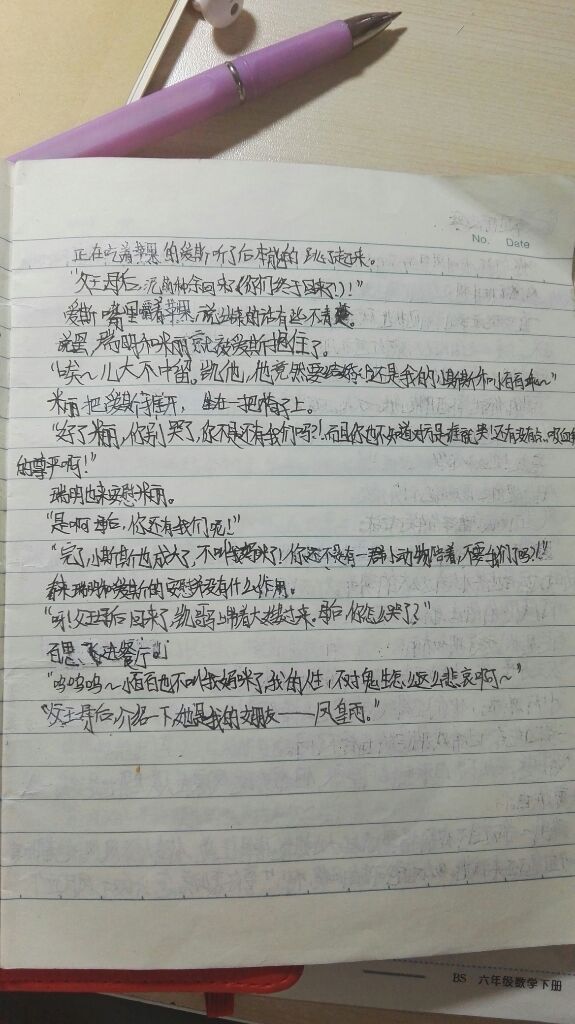 No. Date
正在吃着苹果的爱斯听了后本能的跳了起来。
"父王母后,泥萌种余回来《你们终于回来了》!"
爱斯嘴里嚼着苹果,说出来的话有些不清楚。
说罢,瑞明和米丽就被爱斯抱住了。
"唉~儿大不中留。凯他,他竟然要结婚!还是我的小斯斯和小百百乖~"
米丽把爱斯推开,坐在一把椅子上。
"好了米丽,你别哭了,你不是还有我们吗?!而且你也不知道对方是谁就哭!还有没有点
的尊严啊!"
瑞明也来安慰米丽。
"是啊母后,你还有我们呢!"
"完了,小斯斯也成大了,不叫我妈咪了!你还不是有一群小动物陪着,不要我们了吗!!"
看来瑞明和爱斯的安慰并没有什么作用。
"呀!父王母后回来了,凯哥马上带着大嫂过来。母后,你怎么哭了?"
百思飞进餐厅。
"呜呜呜~小百百也不叫我妈咪了,我的人生,不对鬼生怎么这么悲哀啊~"
"父王母后,介绍一下,她是我的女朋友——凤皇雨。"
BS 六年级数学下册